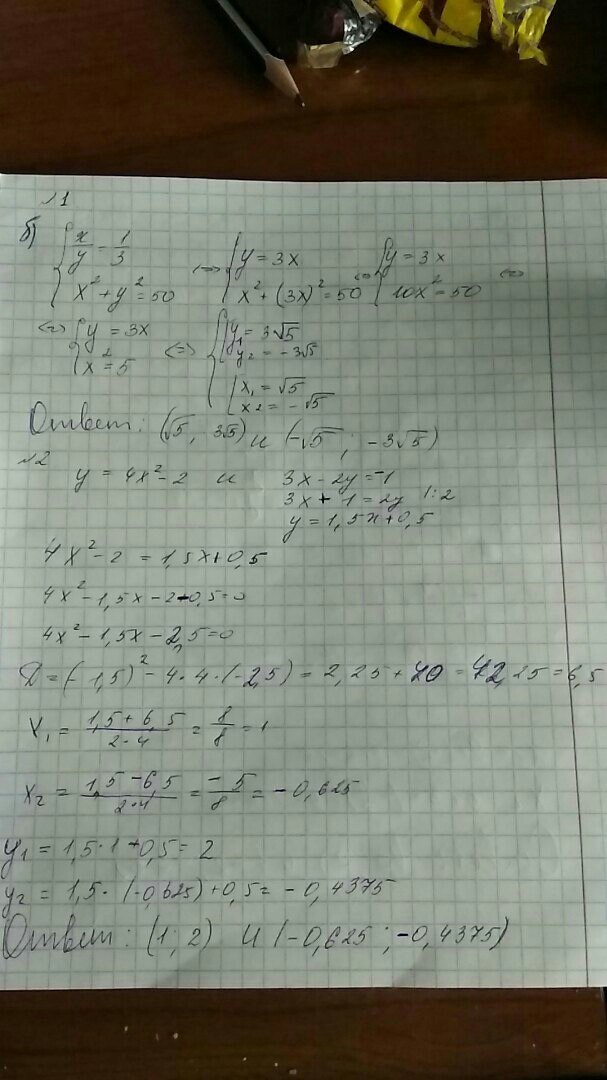 №1
б) { x/y = 1/3 <=> { y = 3x <=> { y = 3x <=>
x² + y² = 50 x² + (3x)² = 50 10x² = 50
<=> { y = 3x <=> { [ y₁ = 3√5
x² = 5 y₂ = -3√5
[ x₁ = √5
x₂ = -√5
Ответ: (√5, 3√5) и (-√5; -3√5)
№2
y = 4x² - 2 и 3x - 2y = -1
3x + 1 = 2y |:2
y = 1,5x + 0,5
4x² - 2 = 1,5x + 0,5
4x² - 1,5x - 2 - 0,5 = 0
4x² - 1,5x - 2,5 = 0
D = (-1,5)² - 4·4·(-2,5) = 2,25 + 40 = 42,25 = 6,5
x₁ = (1,5 + 6,5)/(2·4) = 8/8 = 1
x₂ = (1,5 - 6,5)/(2·4) = -5/8 = -0,625
y₁ = 1,5·1 + 0,5 = 2
y₂ = 1,5·(-0,625) + 0,5 = -0,4375
Ответ: (1; 2) и (-0,625; -0,4375)